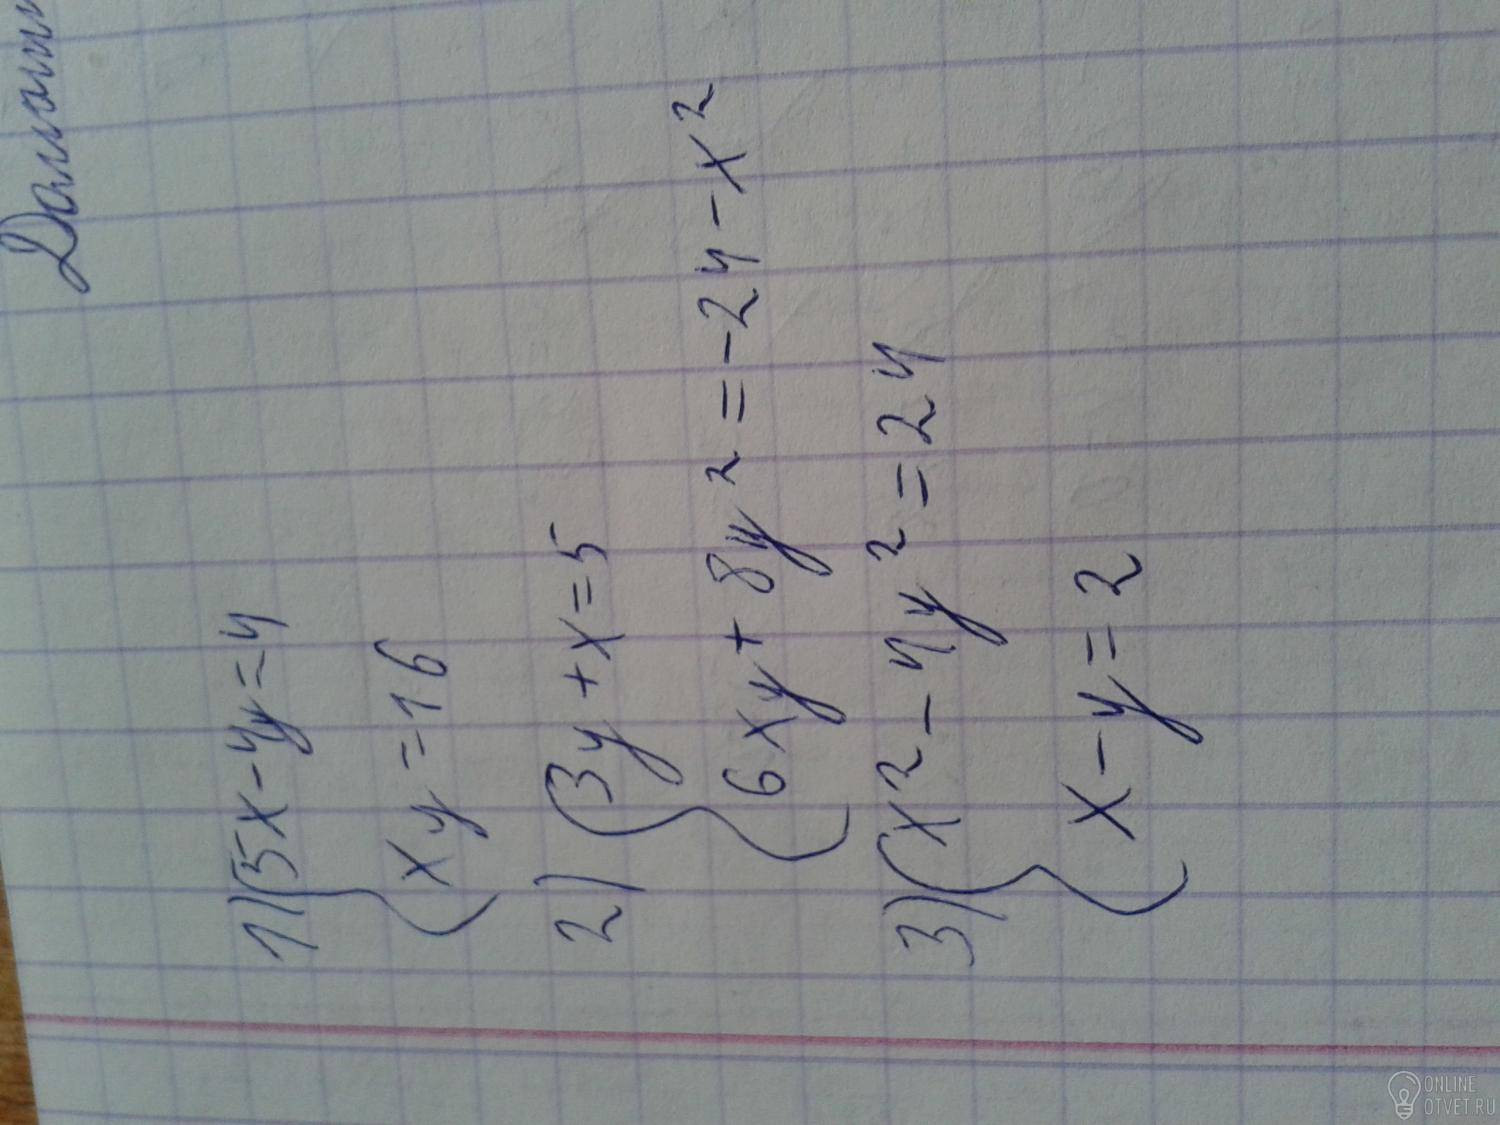 1) {5x-4y=4
xy=16
2) {3y+x=5
6xy+8y²=-24-x²
3) {x²-4y²=24
x-y=2
ONLINE
OTVET.RU